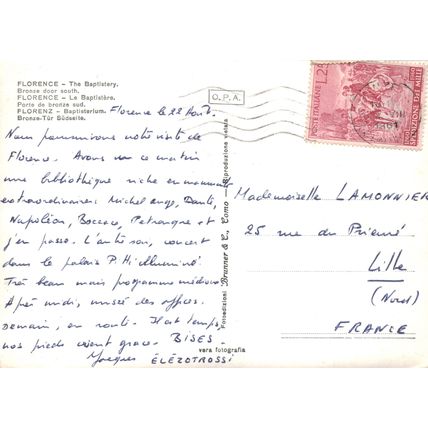 FLORENCE - The Baptistery.
Bronze door south.
FLORENCE - Le Baptistère.
Porte de bronze sud.
FLORENZ - Baptisterium.
Bronze-Tür Südseite.
O.P.A.
Florence le 22 Août.
Nous poursuivons notre visite de
Florence. Avons vu ce matin
une bibliothèque riche en manuscrits
extraordinaires: Michel Ange, Dante,
Napoléon, Boccace, Petrarque et
j'en passe. L'autre soir, concert
dans le palais Pitti illuminé
Très beau mais programme médiocre
Après midi, musée des offices.
Demain, en route. Il est temps,
nos pieds crient grace. BISES.
Jacques ELEZOTROSSI
vera fotografia
Fotoedizioni Brunner & C., Como - Riproduzione vietata
POSTE ITALIANE L. 25
SPEDIZIONE DEI MILLE
Mademoiselle LAMONNIER
25 rue du Prieuré
Lille
(Nord)
FRANCE